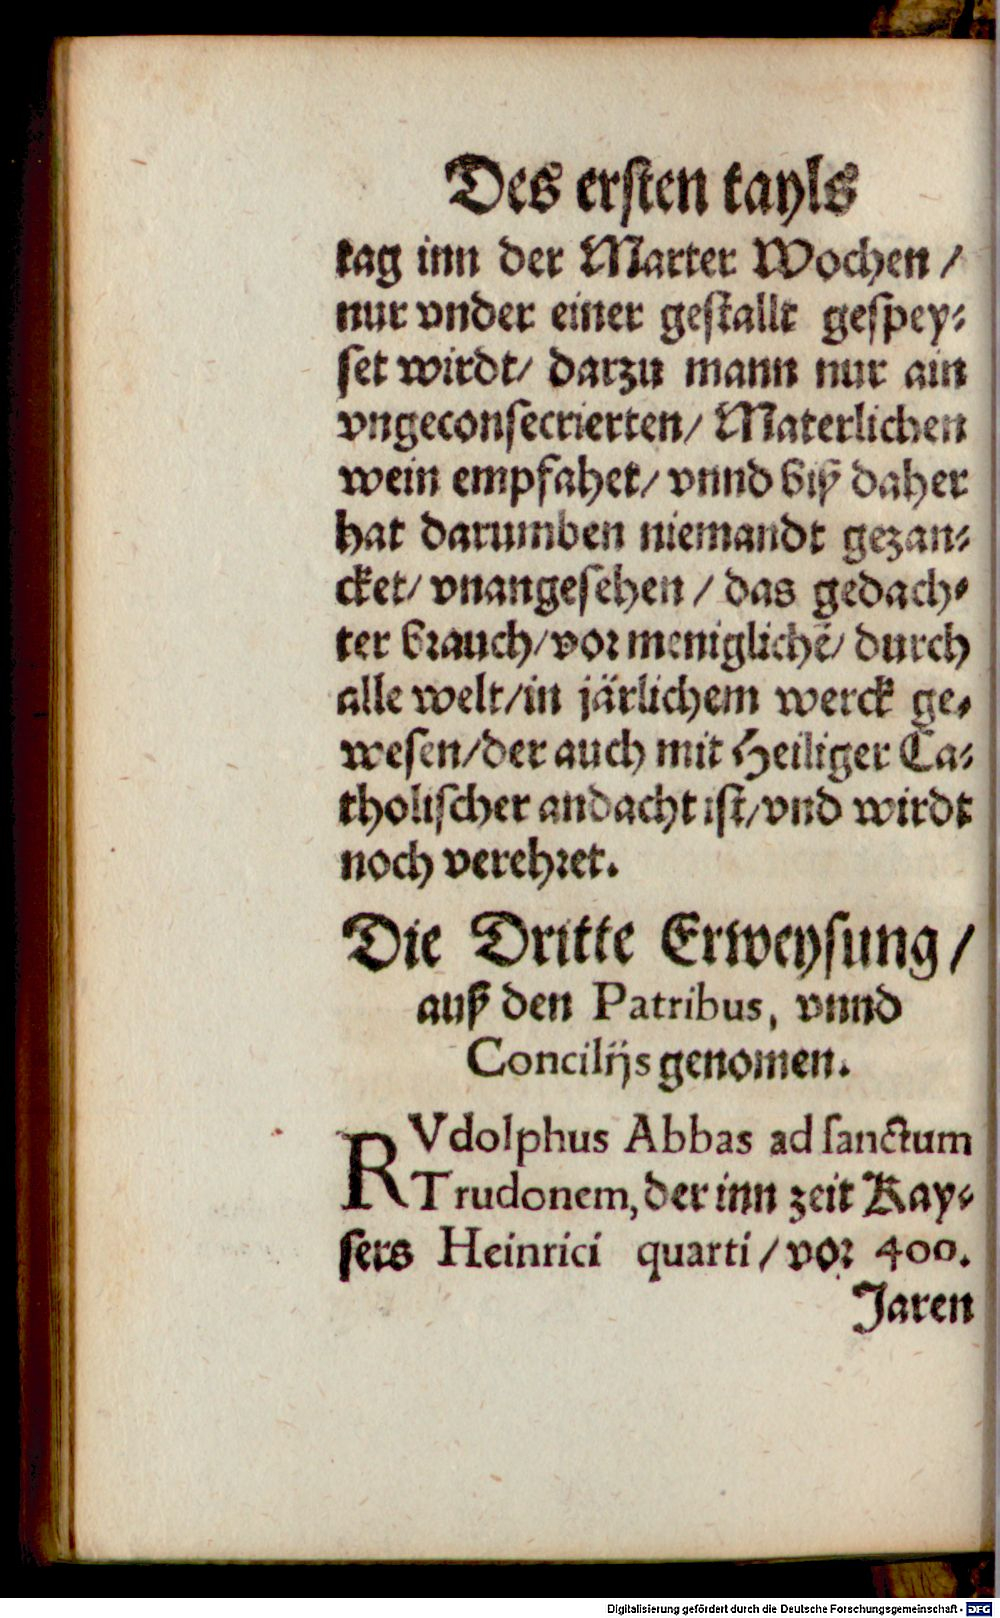 Des ersten tayls
tag inn der Marter Wochen /
nur vnder einer gestallt gespey-
set wirdt/ darzu mann nur ain
vngeconsecrierten/ Materlichen
wein empfahet/ vnnd biß daher
hat darumben niemandt gezan-
cket/ vnangesehen / das gedach-
ter brauch/vor menigliche͂/ durch
alle welt/in järlichem werck ge-
wesen/der auch mit Heiliger Ca-
tholischer andacht ist/vnd wirdt
noch verehret.
Die Dritte Erweysung /
auß den Patribus, vnnd
Concilijs genomen.
RVdolphus Abbas ad sanctum
Trudonem, der inn zeit Kay-
sers Heinrici quarti / vor 400.
Jaren
Digitalisierung gefördert durch die Deutsche Forschungsgemeinschaft - DFG